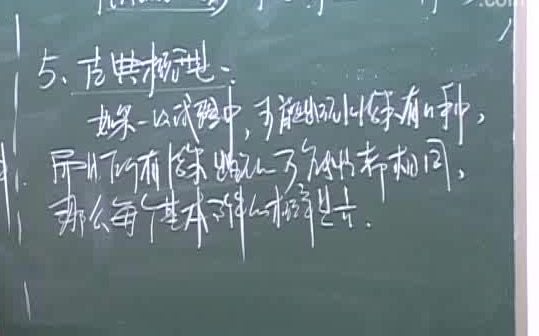 5、古典概型：
如果一次试验中，可能出现的结果有n种，
而且所有结果出现的可能性都相同，
那么每个基本事件的概率是1/n.
.com